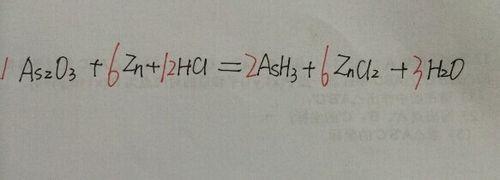 1 As₂O₃ + 6Zn + 12HCl = 2AsH₃ + 6ZnCl₂ + 3H₂O